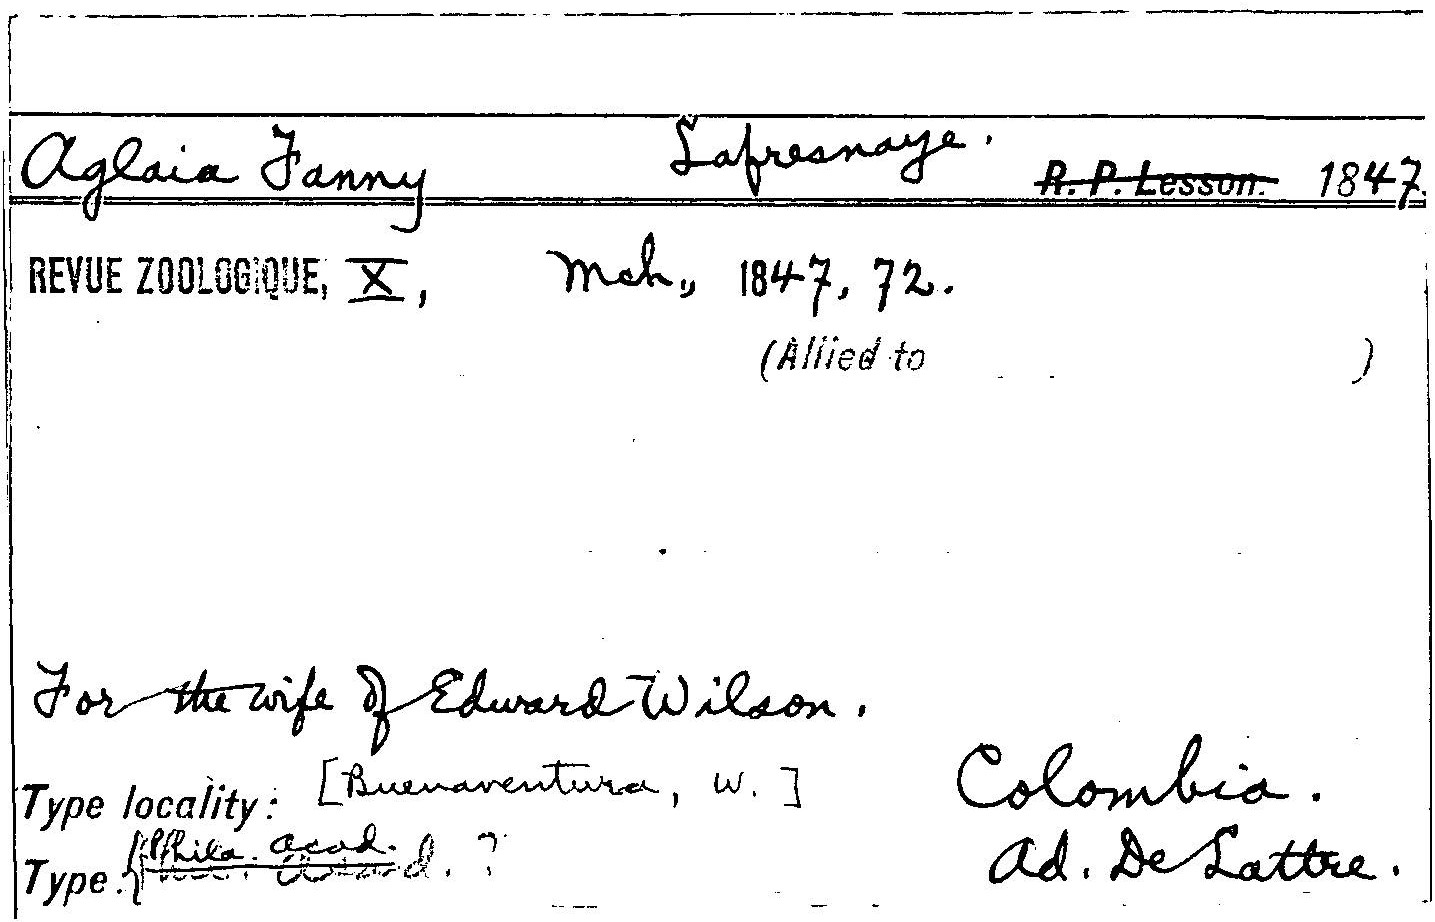 Aglaia Fanny Lafresnaye. R. P. Lesson. 1847.
REVUE ZOOLOGIQUE, X, Mch., 1847, 72.
(Allied to )
For the wife of Edward Wilson.
Type locality: [Buenaventura, W.] Colombia.
Type. Phila. Acad. ? Ad. De Lattre.